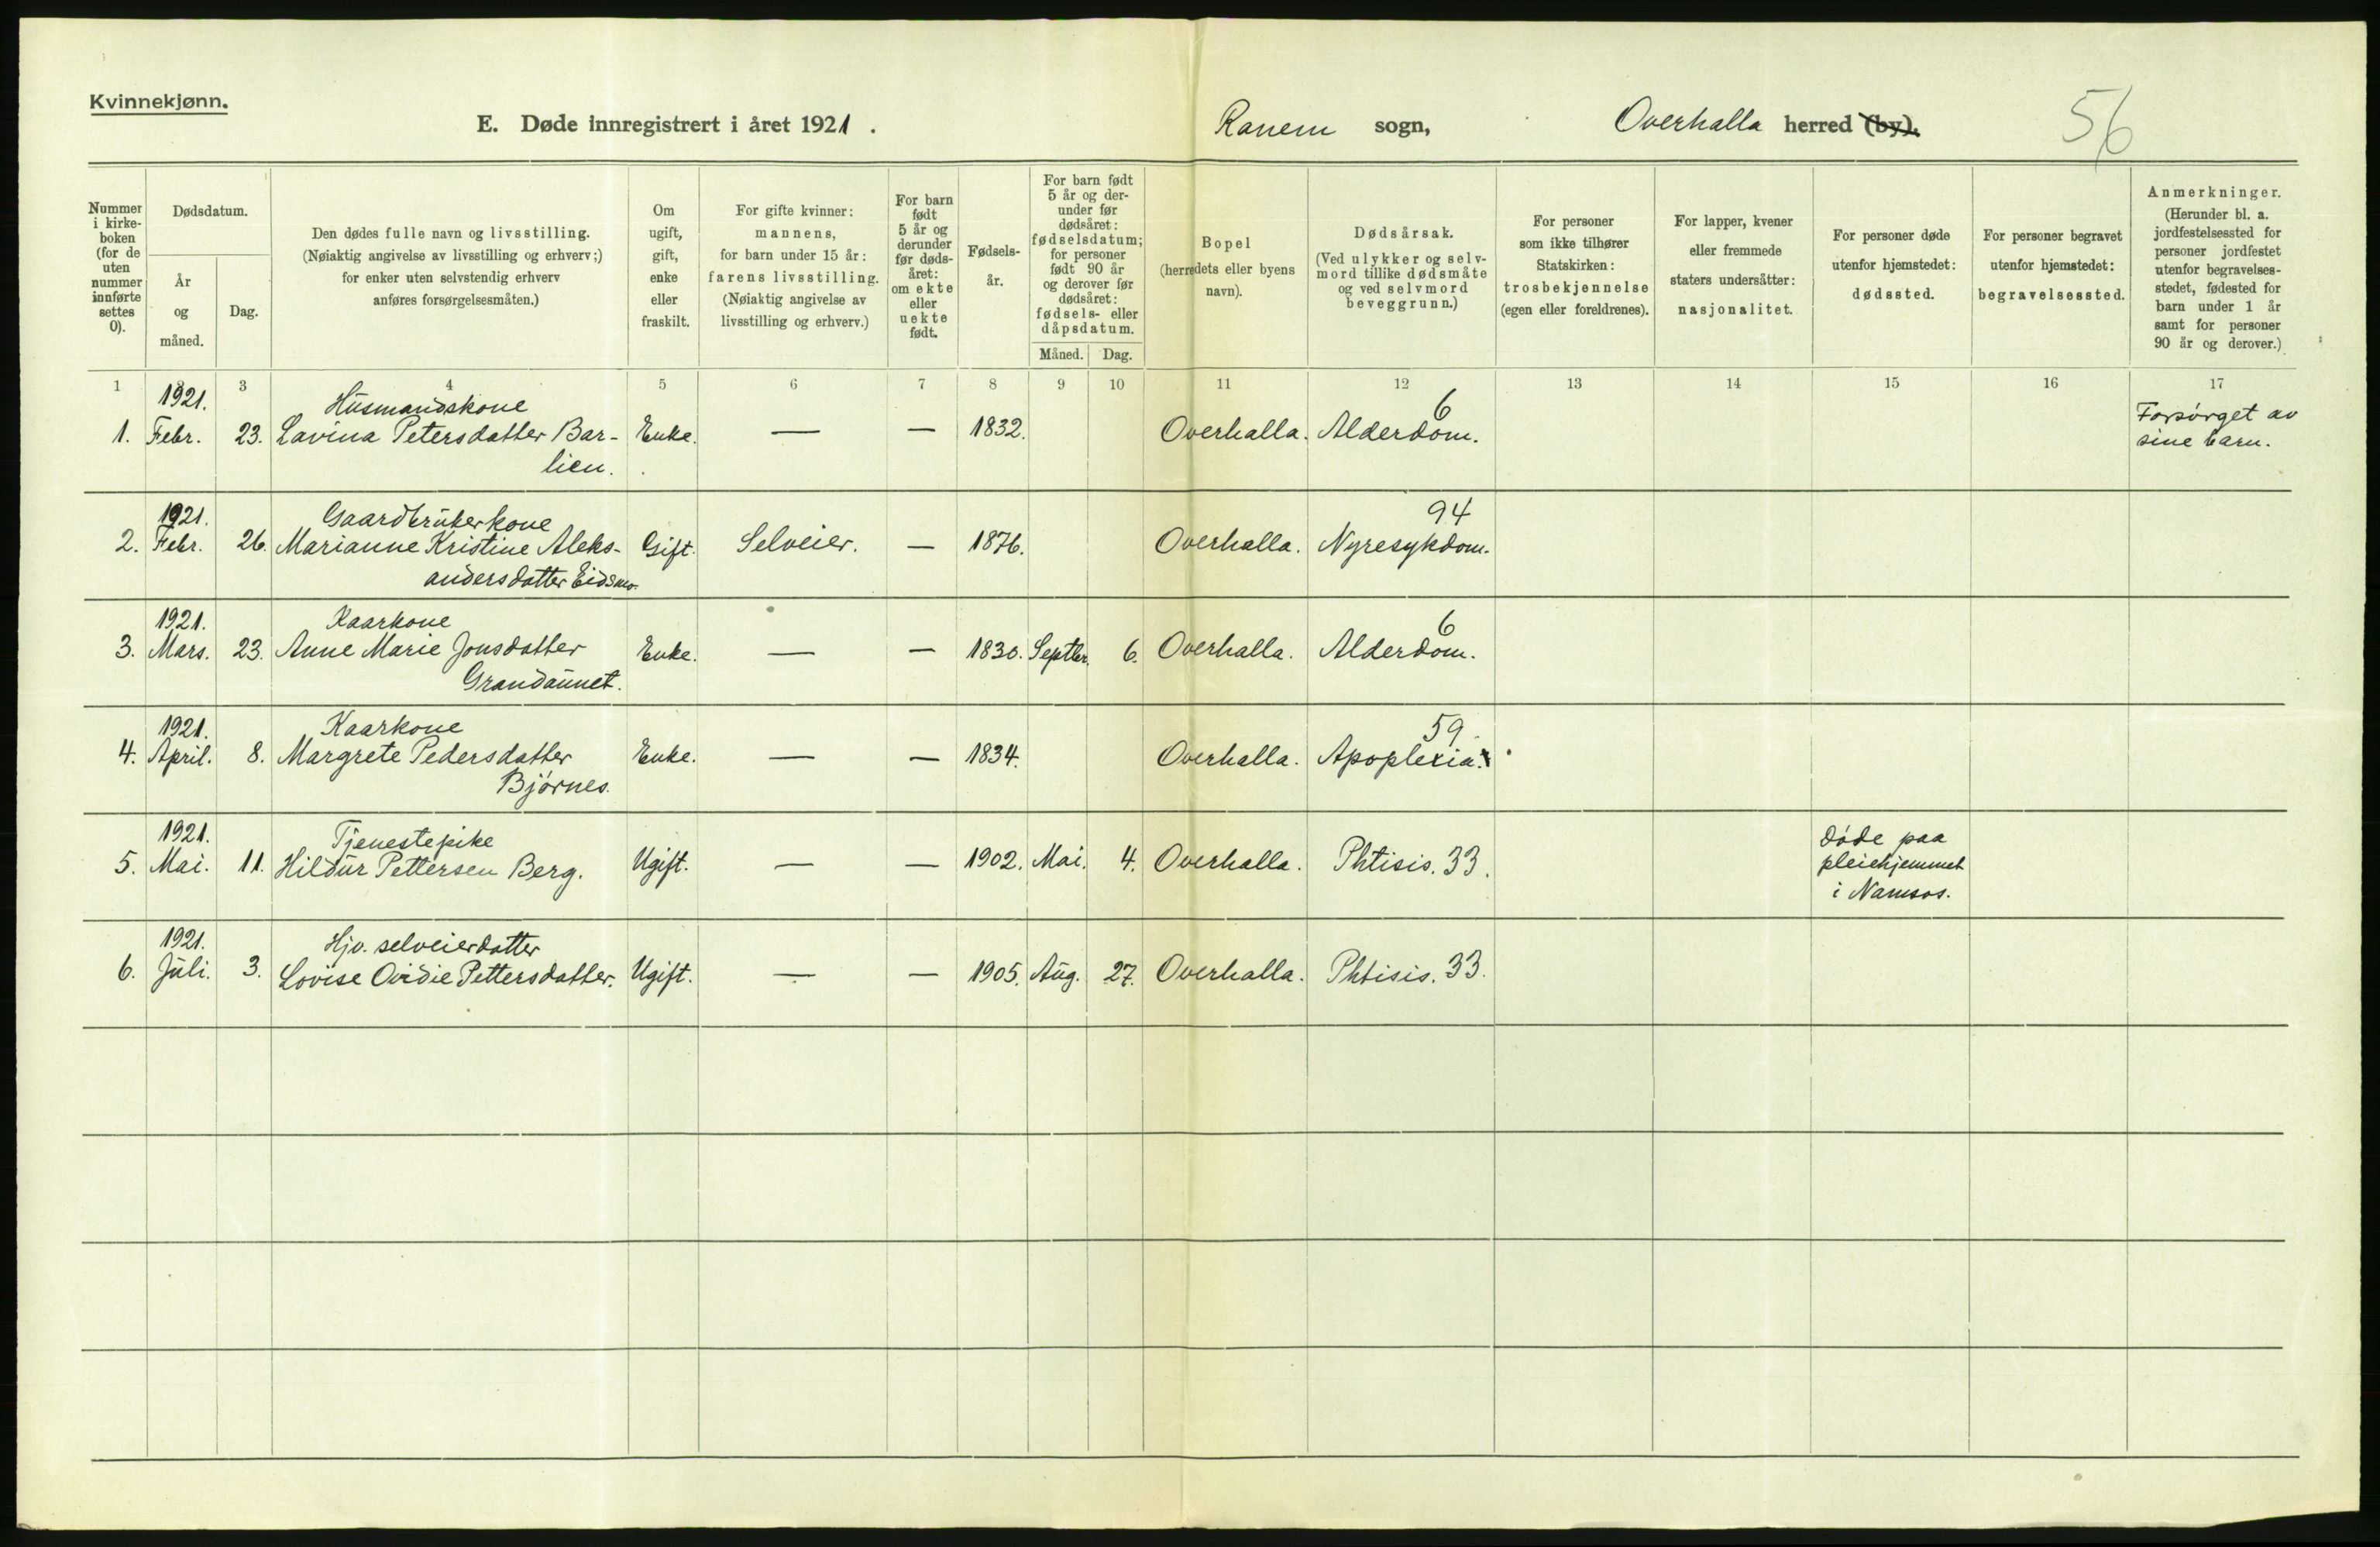 Kvinnekjønn.
E. Døde innregistrert i året 1921. Ranem sogn, Overhalla herred (by). 56
Nummer i kirkeboken (for de uten nummer innførte settes 0).
Dødsdatum.
År og måned.
Dag.
Den dødes fulle navn og livsstilling.
(Nøiaktig angivelse av livsstilling og erhverv;)
for enker uten selvstendig erhverv
anføres forsørgelsesmåten.)
Om ugift, gift, enke eller fraskilt.
For gifte kvinner:
mannens,
for barn under 15 år:
farens livsstilling.
(Nøiaktig angivelse av
livsstilling og erhverv.)
For barn født 5 år og derunder før dødsåret: om ekte eller uekte født.
Fødselsår.
For barn født 5 år og derunder før dødsåret: fødselsdatum; for personer født 90 år og derover før dødsåret: fødsels- eller dåpsdatum.
Måned. Dag.
Bopel
(herredets eller byens
navn).
Dødsårsak.
(Ved ulykker og selvmord tillike dødsmåte
og ved selvmord
beveggrunn.)
For personer
som ikke tilhører
Statskirken:
trosbekjennelse
(egen eller foreldrenes).
For lapper, kvener
eller fremmede
staters undersåtter:
nasjonalitet.
For personer døde
utenfor hjemstedet:
dødssted.
For personer begravet
utenfor hjemstedet:
begravelsessted.
Anmerkninger.
(Herunder bl. a.
jordfestelsessted for
personer jordfestet
utenfor begravelsesstedet, fødested for
barn under 1 år
samt for personer
90 år og derover.)
1 2 3 4 5 6 7 8 9 10 11 12 13 14 15 16 17
1921. Husmandskone 6 Forsørget av
1. Febr. 23. Lavina Petersdatter Bar- Enke. — — 1832. Overhalla. Alderdom. sine barn.
lien.
1921. Gaardbrukerkone 94
2. Febr. 26. Marianne Kristine Aleks- Gift. Selveier. — 1876. Overhalla. Nyresykdom.
andersdatter Eidsmo.
1921. Kaarkone 6
3. Mars. 23. Anne Marie Jonsdatter Enke. — — 1830. Septbr. 6. Overhalla. Alderdom.
Grandaunet.
1921. Kaarkone 59.
4. April. 8. Margrete Pedersdatter Enke. — — 1834. Overhalla. Apoplexia.
Bjørnes.
1921. Tjenestepike døde paa
5. Mai. 11. Hildur Pettersen Berg. Ugift. — — 1902. Mai. 4. Overhalla. Phtisis. 33. pleiehjemmet
i Namsos.
1921. Hjv. selveierdatter
6. Juli. 3. Lovise Ovidie Pettersdatter. Ugift. — — 1905. Aug. 27. Overhalla. Phtisis. 33.